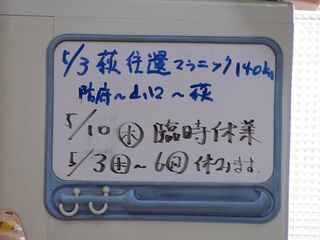 5/3 萩往還マラニック140km
防府~山口~萩
5/10㊌ 臨時休業
5/3㊏~6㊊休みます.